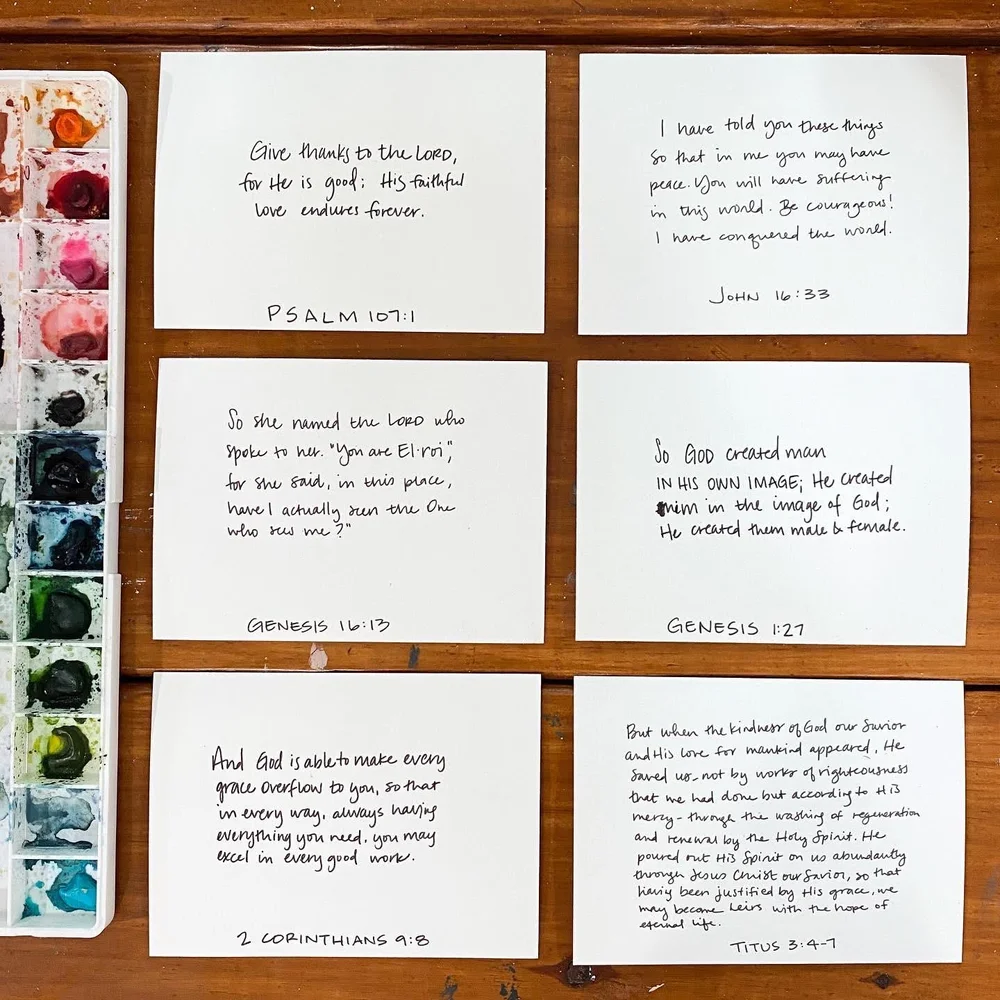 Give thanks to the LORD,
for He is good; His faithful
love endures forever.
PSALM 107:1
I have told you these things
so that in me you may have
peace. You will have suffering
in this world. Be courageous!
I have conquered the world.
JOHN 16:33
So she named the LORD who
spoke to her: "You are El-roi",
for she said, in this place,
have I actually seen the One
who sees me?"
GENESIS 16:13
So GOD created man
IN HIS OWN IMAGE; He created
him in the image of God;
He created them male & female.
GENESIS 1:27
And God is able to make every
grace overflow to you, so that
in every way, always having
everything you need, you may
excel in every good work.
2 CORINTHIANS 9:8
But when the kindness of God our Savior
and His love for mankind appeared, He
saved us - not by works of righteousness
that we had done but according to His
mercy - through the washing of regeneration
and renewal by the Holy Spirit. He
poured out His Spirit on us abundantly
through Jesus Christ our Savior, so that
having been justified by His grace, we
may become heirs with the hope of
eternal life.
TITUS 3:4-7